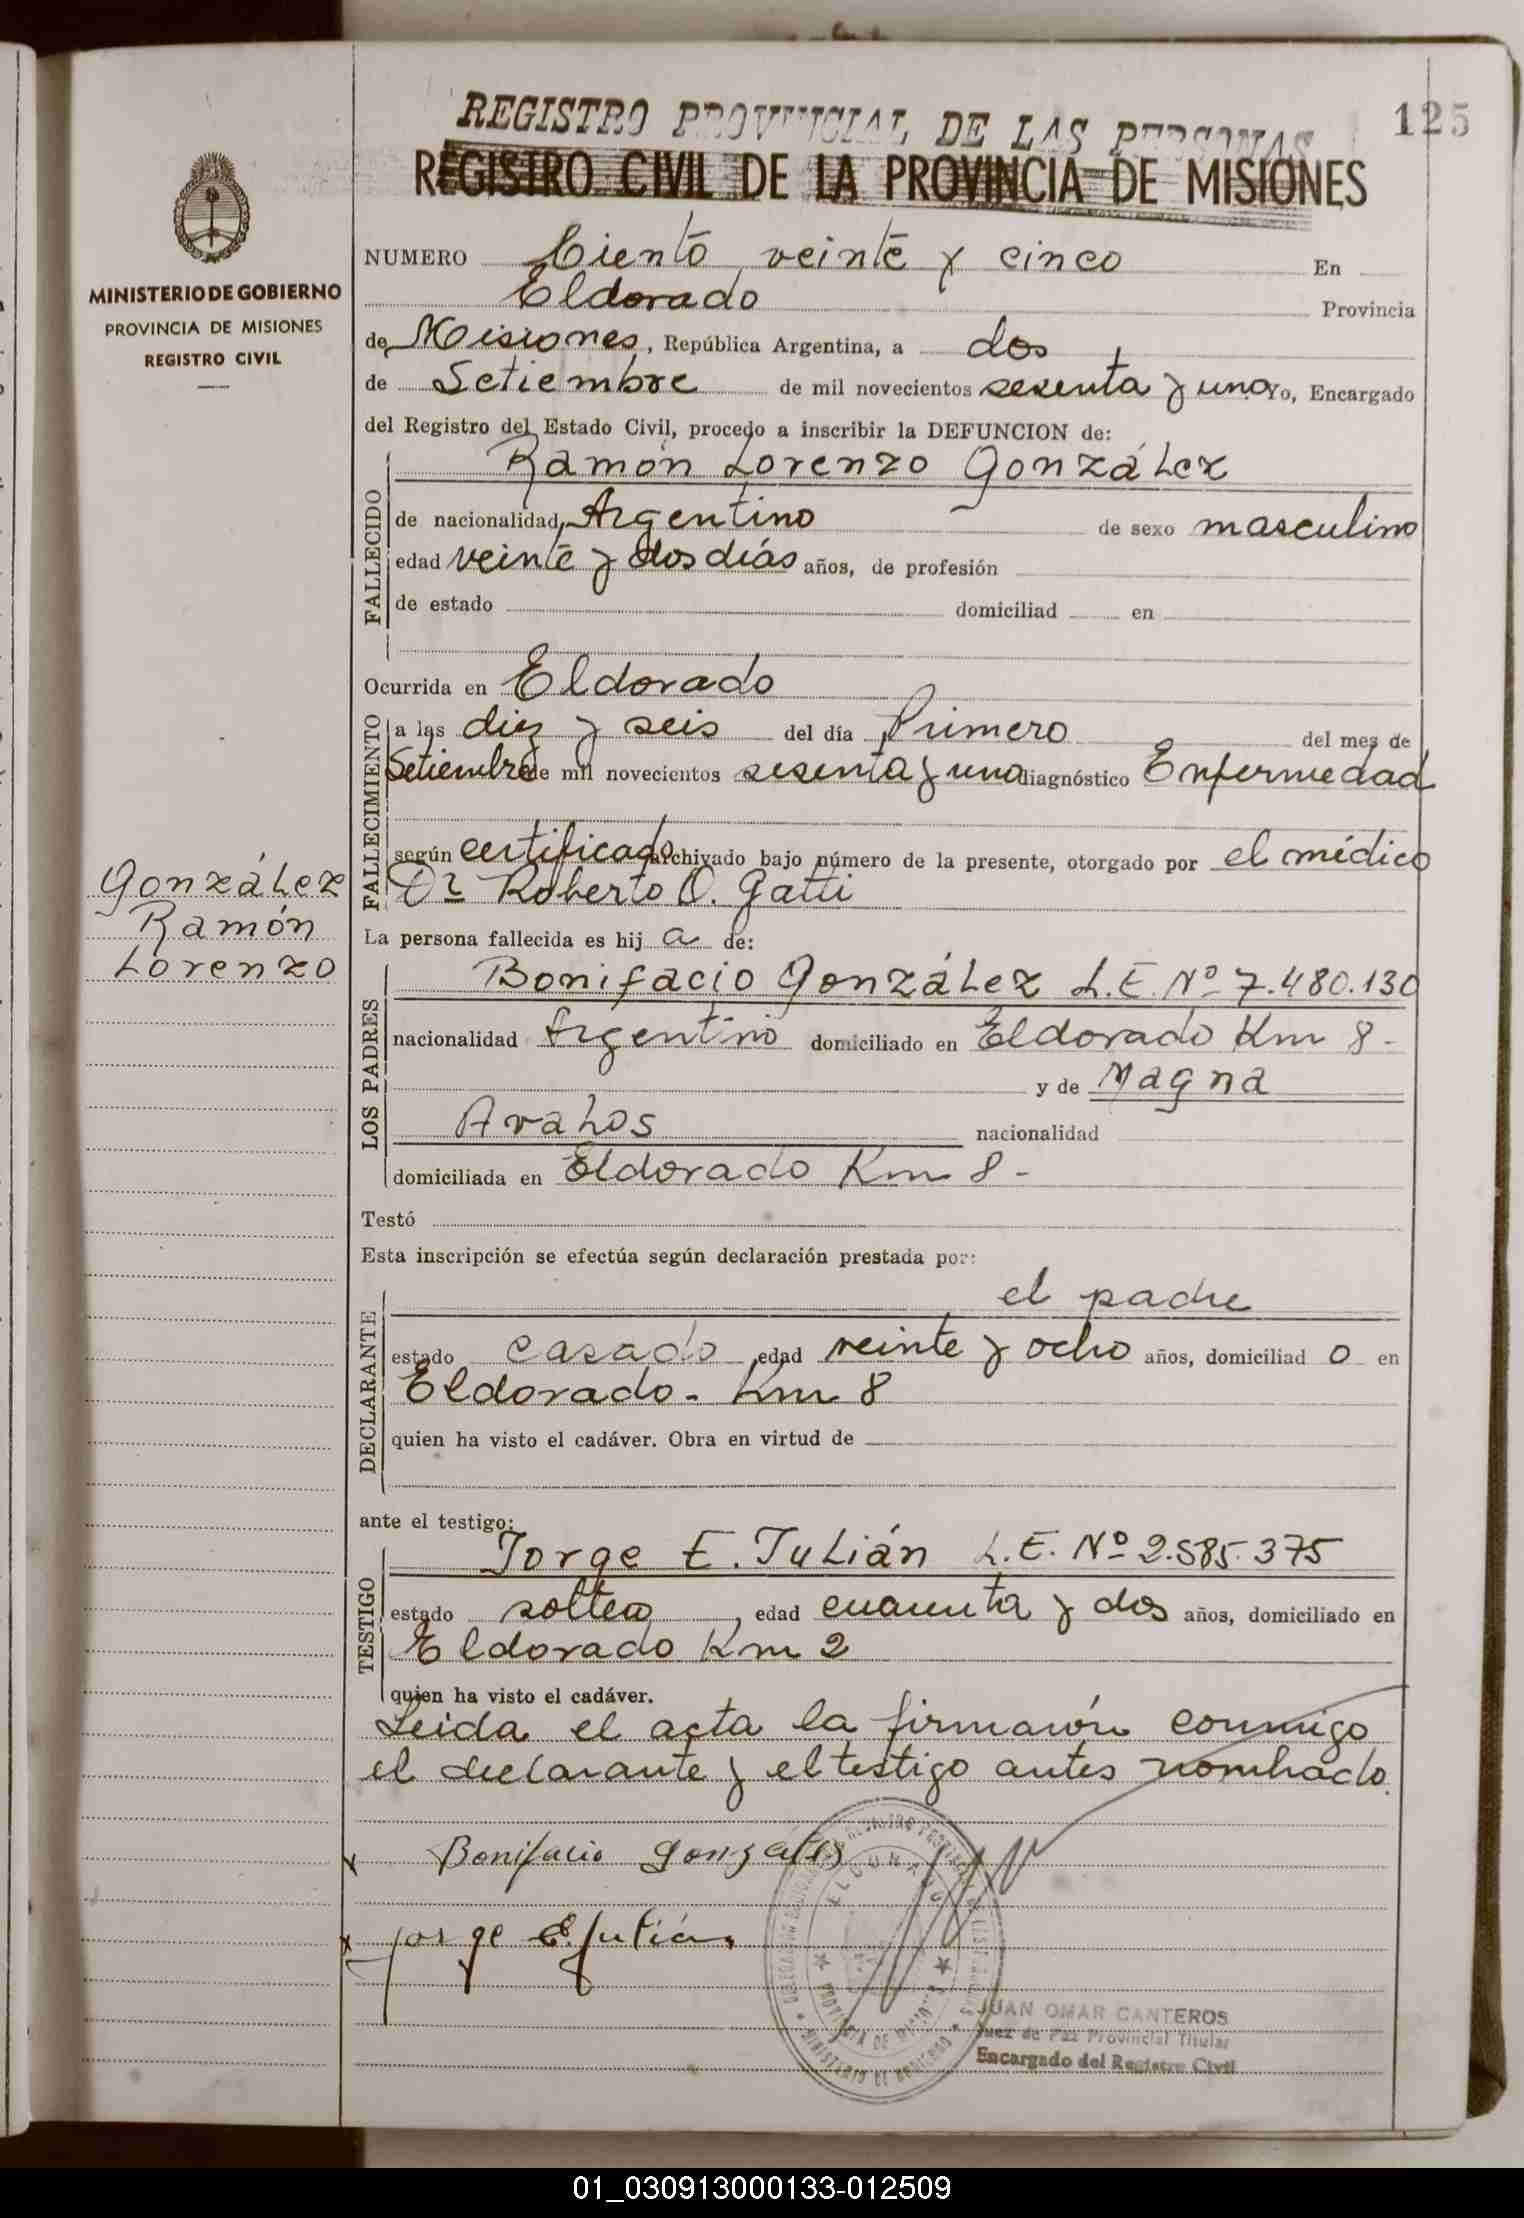 125
REGISTRO PROVINCIAL DE LAS PERSONAS
REGISTRO CIVIL DE LA PROVINCIA DE MISIONES
MINISTERIO DE GOBIERNO
PROVINCIA DE MISIONES
REGISTRO CIVIL
NUMERO Ciento veinte y cinco En
Eldorado Provincia
de Misiones, República Argentina, a dos
de Setiembre de mil novecientos sesenta y uno Yo, Encargado
del Registro del Estado Civil, procedo a inscribir la DEFUNCION de:
FALLECIDO
Ramón Lorenzo González
de nacionalidad Argentino de sexo masculino
edad veinte y dos días años, de profesión
de estado domiciliad en
Ocurrida en Eldorado
FALLECIMIENTO
a las diez y seis del día Primero del mes de
Setiembre de mil novecientos sesenta y uno diagnóstico Enfermedad
según certificado archivado bajo número de la presente, otorgado por el médico
Dr Roberto O. Gatti
González
Ramón
Lorenzo
La persona fallecida es hij a de:
LOS PADRES
Bonifacio González L.E. Nº 7.480.130
nacionalidad Argentino domiciliado en Eldorado Km 8-
y de Magna
Avalos nacionalidad
domiciliada en Eldorado Km 8-
Testó
Esta inscripción se efectúa según declaración prestada por:
DECLARANTE
el padre
estado casado edad veinte y ocho años, domiciliad o en
Eldorado- Km 8
quien ha visto el cadáver. Obra en virtud de
ante el testigo:
TESTIGO
Jorge E. Julián L.E. Nº 2.585.375
estado soltero, edad cuarenta y dos años, domiciliado en
Eldorado Km 2
quien ha visto el cadáver.
Leida el acta la firmarón conmigo
el declarante y el testigo antes nombrado.
x Bonifacio Gonzales
x Jorge E. Julián
ELDORADO
PROVINCIA DE MISIONES
MINISTERIO DE GOBIERNO
JUAN OMAR CANTEROS
Juez de Paz Provincial Titular
Encargado del Registro Civil
01_030913000133-012509